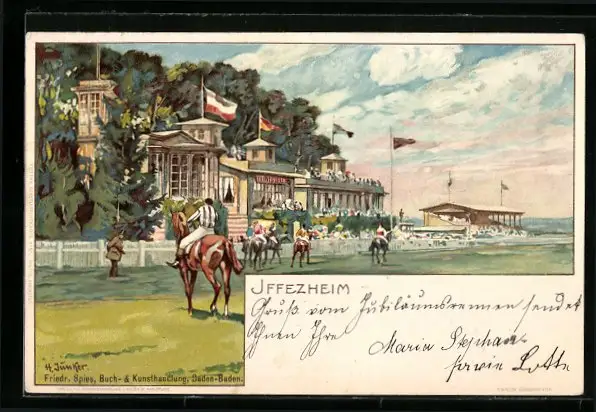 JFFEZHEIM
Gruß vom Jubiläumsrennen sendet
Ihnen Ihre
Maria Stephan
sowie Lotte
H. Junker.
Friedr. Spies, Buch- & Kunsthandlung, Baden-Baden.